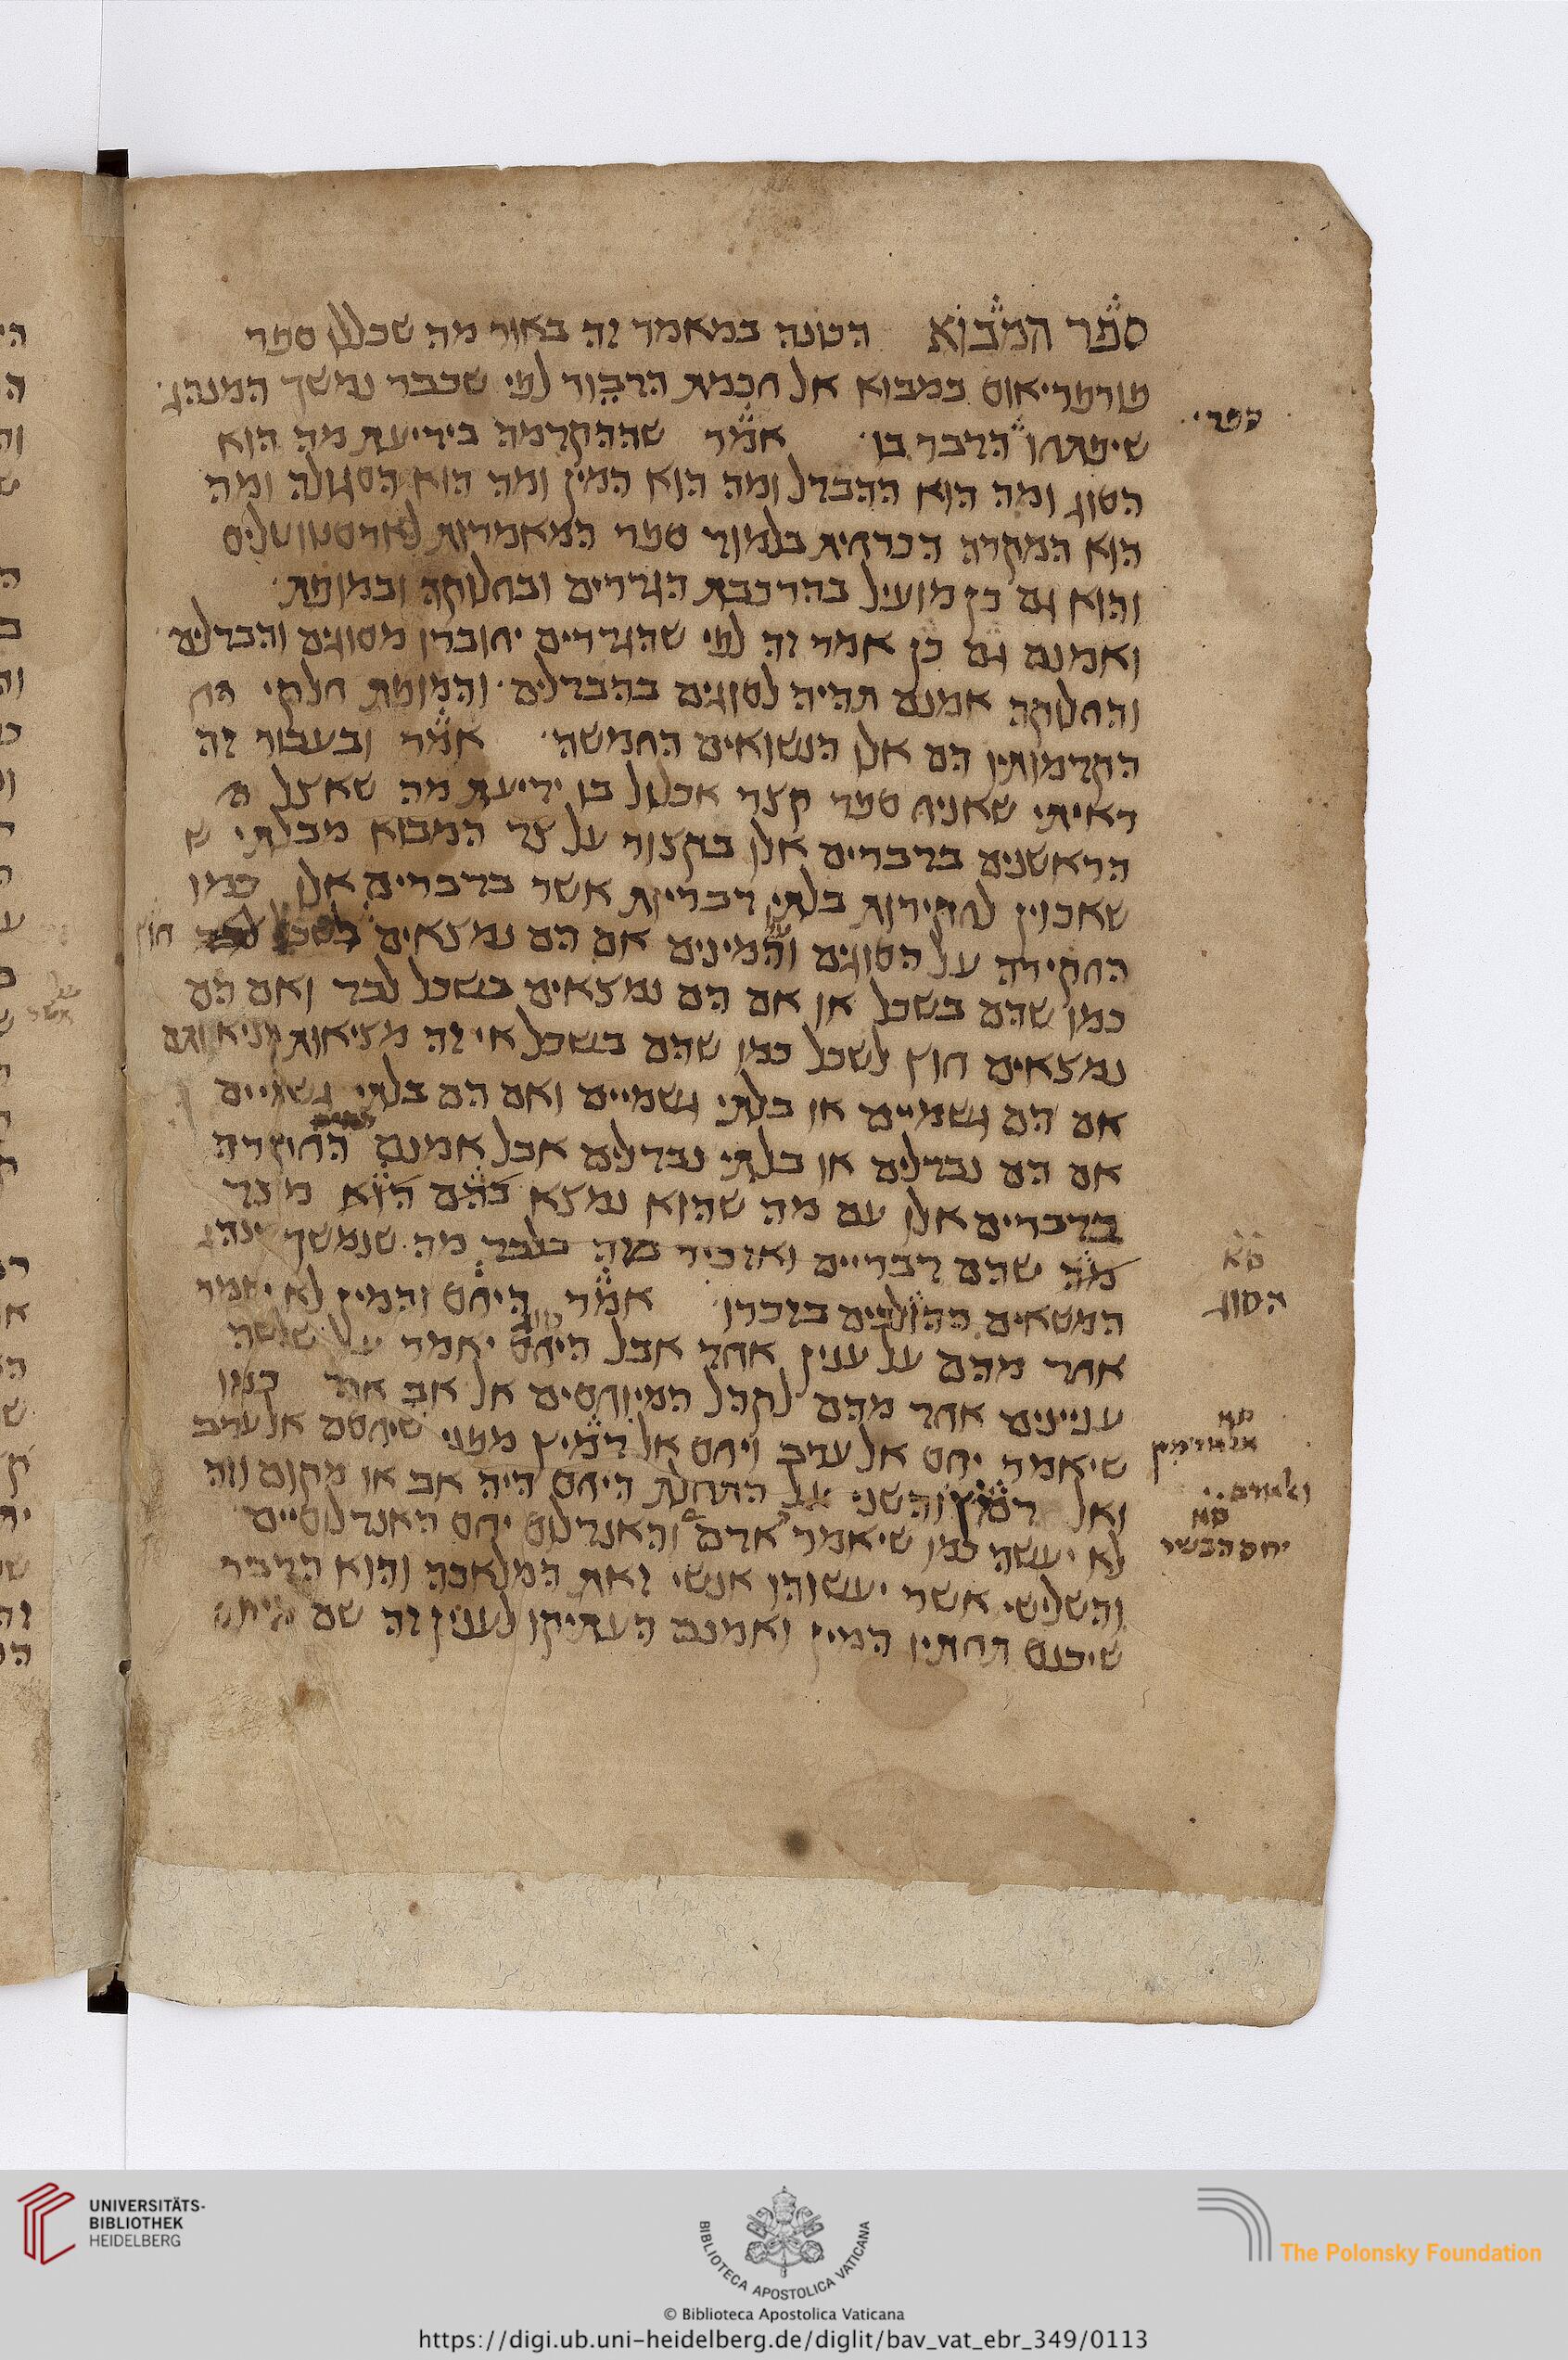 ספר המבוא הכונה במאמר זה באור מה שכללו ספר
פורפריאוס במבוא אל חכמת הדבור לפי שכבר נמשך המנהג
שיפתחו הדברבו אמר שההקדמה בידיעת מה הוא
הסוג ומה הוא ההבדל ומה הוא המין ומה הוא הסגולה ומה
הוא המקרה הכרחית בלמוד ספר המאמרות לארסטוטליס
והוא גם כן מועיל בהרכבת הגדרים ובחלוקה ובמופת
ואמנם גם כן אמר זה לפי שהגדרים יחוברו מסוגים והבדלים
והחלוקה אמנם תהיה לסוגים בהבדלים והמופת חלקי הח
הקדמותיו הם אלו הנשואים החמשה אמר ובעבור זה
ראיתי שאניח ספר קצר אכלול בו ידיעת מה שאצל ה
הראשנים בדברים אלו בקצור על צד המבוא מבלתי ש
שאכוין לחקירות בלתי דבריות אשר בדברים אלו כמו
החקירה על הסוגים והמינים אם הם נמצאים חוץ
כמו שהם בשכל או אם הם נמצאים בשכל לבד ואם הם
נמצאים חוץ לשכל כמו שהם בשכל אי זה מציאות מציאותם
אם הם גשמיים או בלתי גשמיים ואם הם בלתי גשמיים
אם הם נבדלים או בלתי נבדלים אבל אמנם החקירה
בדברים אלו עם מה שהוא נמצא בהם הוא מצד
מה שהם דבריים ואזכיר מזה בלבד מה שנמשך מנהג
המשאים ההולכים בזכרו אמר היחס והמין לא יאמר
אחד מהם על ענין אחד אבל היחס יאמר על שלשה
עניינים אחד מהם לקהל המיוחסים אל אב אחד כמו
שיאמר יחס אל ערב ויחס אל רמיץ מפני שיחסם אל ערב
ואל רמיץ והשני על התחלת היחס היה אב או מקום וזה
לא יעשה כמו שיאמר אדם והאנדלוס יחס האנדלוסיים
והשלישי אשר יעשוהו אנשי זאת המלאכה והוא הדבר
שיכנס תחתיו המין ואמנם העתיקו לענין זה שם היחס
הסוג
יחס הבשר
UNIVERSITÄTS-
BIBLIOTHEK
HEIDELBERG
BIBLIOTECA APOSTOLICA VATICANA
The Polonsky Foundation
© Biblioteca Apostolica Vaticana
https://digi.ub.uni-heidelberg.de/diglit/bav_vat_ebr_349/0113